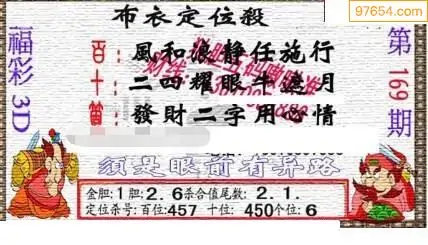 97654.com
布衣定位殺
福彩3D
第169期
百:風和浪静任施行
十:二四耀眼牛邀月
發財二字用心情
須是眼前有弄路
金胆:1胆:2.6杀合值尾数:2.1.
定位杀号:百位:457 十位:450个位:6